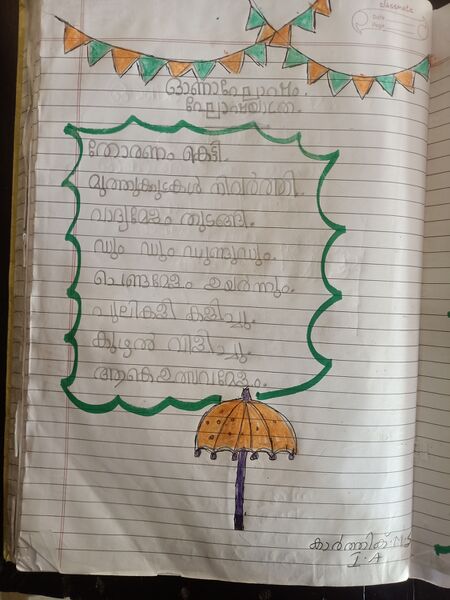 classmate
Date
Page
ഓണാഘോഷം
ഘോഷയാത്ര
തോരണം കെട്ടി.
മുത്തുക്കുടകൾ നിവർത്തി.
വാദ്യമേളം തുടങ്ങി.
ഡും ഡും ഡുണ്ടുഡും.
ചെണ്ടമേളം ഉയർന്നും.
പുലികളി കളിച്ചു.
കുഴൽ വിളിച്ചു.
ആകെ ഉത്സവമേളം.
കാർത്തിക്.M.S
I.A